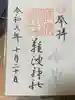 奉拝
難波神社
令和六年十月二十日